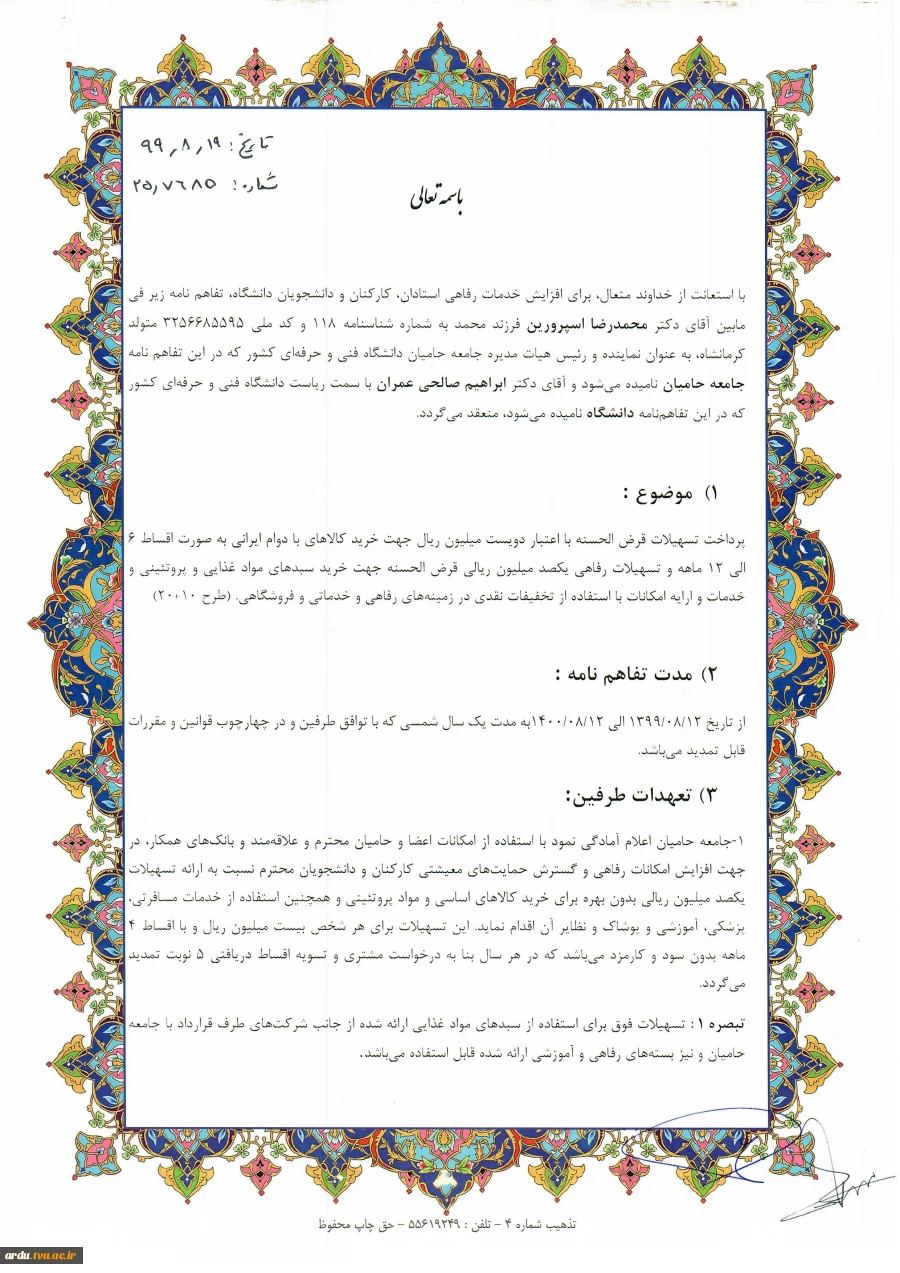 تاریخ: ۹۹٫۸٫۱۹
شماره: ۲۵٫۷۶۸۵
باسمه تعالی
با استعانت از خداوند متعال، برای افزایش خدمات رفاهی استادان، کارکنان و دانشجویان دانشگاه، تفاهم نامه زیر فی
مابین آقای دکتر محمدرضا اسپرورین فرزند محمد به شماره شناسنامه ۱۱۸ و کد ملی ۳۲۵۶۶۸۵۵۹۵ متولد
کرمانشاه، به عنوان نماینده و رئیس هیات مدیره جامعه حامیان دانشگاه فنی و حرفه‌ای کشور که در این تفاهم نامه
جامعه حامیان نامیده می‌شود و آقای دکتر ابراهیم صالحی عمران با سمت ریاست دانشگاه فنی و حرفه‌ای کشور
که در این تفاهم‌نامه دانشگاه نامیده می‌شود، منعقد می‌گردد.
۱) موضوع :
پرداخت تسهیلات قرض الحسنه با اعتبار دویست میلیون ریال جهت خرید کالاهای با دوام ایرانی به صورت اقساط ۶
الی ۱۲ ماهه و تسهیلات رفاهی یکصد میلیون ریالی قرض الحسنه جهت خرید سبدهای مواد غذایی و پروتئینی و
خدمات و ارایه امکانات با استفاده از تخفیفات نقدی در زمینه‌های رفاهی و خدماتی و فروشگاهی. (طرح ۱۰+۲۰)
۲) مدت تفاهم نامه :
از تاریخ ۱۳۹۹/۰۸/۱۲ الی ۱۴۰۰/۰۸/۱۲به مدت یک سال شمسی که با توافق طرفین و در چهارچوب قوانین و مقررات
قابل تمدید می‌باشد.
۳) تعهدات طرفین:
۱-جامعه حامیان اعلام آمادگی نمود با استفاده از امکانات اعضا و حامیان محترم و علاقه‌مند و بانک‌های همکار، در
جهت افزایش امکانات رفاهی و گسترش حمایت‌های معیشتی کارکنان و دانشجویان محترم نسبت به ارائه تسهیلات
یکصد میلیون ریالی بدون بهره برای خرید کالاهای اساسی و مواد پروتئینی و همچنین استفاده از خدمات مسافرتی،
پزشکی، آموزشی و پوشاک و نظایر آن اقدام نماید. این تسهیلات برای هر شخص بیست میلیون ریال و با اقساط ۴
ماهه بدون سود و کارمزد می‌باشد که در هر سال بنا به درخواست مشتری و تسویه اقساط دریافتی ۵ نوبت تمدید
می‌گردد.
تبصره ۱: تسهیلات فوق برای استفاده از سبدهای مواد غذایی ارائه شده از جانب شرکت‌های طرف قرارداد با جامعه
حامیان و نیز بسته‌های رفاهی و آموزشی ارائه شده قابل استفاده می‌باشد.
تذهیب شماره ۴ - تلفن : ۵۵۶۱۹۲۴۹ - حق چاپ محفوظ
ardu.tvu.ac.ir